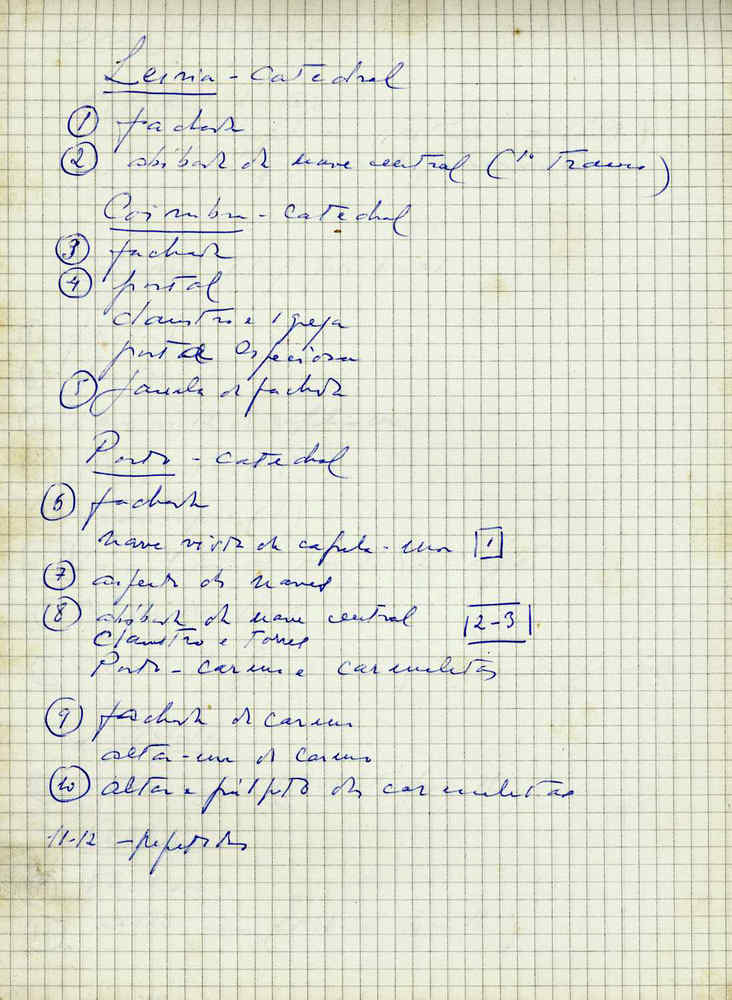 Leiria - catedral
1 fachada
2 abóbada da nave central (1º tramo)
Coimbra - catedral
3 fachada
4 portal
claustro e igreja
porta especiosa
5 janela da fachada
Porto - catedral
6 fachada
nave vista da capela-mor 1
7 aspecto das naves
8 abóbada da nave central 2-3
Claustro e torres
Porto - carmo e carmelitas
9 fachada do carmo
altar-mor do carmo
10 altar e púlpito das carmelitas
11-12 - repetidas